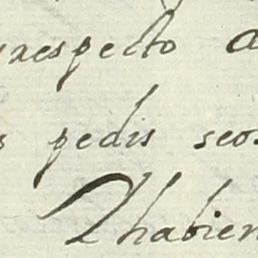 respecto a
pedis seos
Thabien